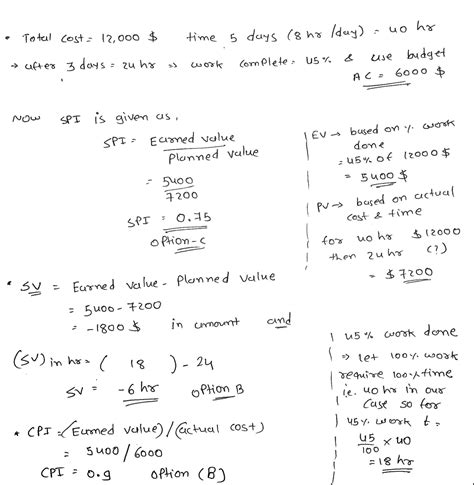 • Total cost = 12,000 $ time 5 days (8 hr /day) = 40 hr
→ after 3 days = 24 hr => work complete = 45% & use budget
AC = 6000 $
Now SPI is given as,
SPI = Earned value
Planned value
= 5400
7200
SPI = 0.75
Option-c
EV → based on % work
done
= 45% of 12000 $
= 5400 $
PV → based on actual
cost & time
for 40 hr $12000
then 24 hr (?)
= $7200
• SV = Earned value - Planned value
= 5400 - 7200
= -1800 $ in amount and
(SV) in hr = ( 18 ) - 24
SV = -6 hr option B
• CPI = (Earned value)/(actual cost)
= 5400/6000
CPI = 0.9 option (B)
45% work done
=> let 100% work
require 100% time
ie. 40 hr in our
case so for
45% work t =
45
100 x 40
= 18 hr